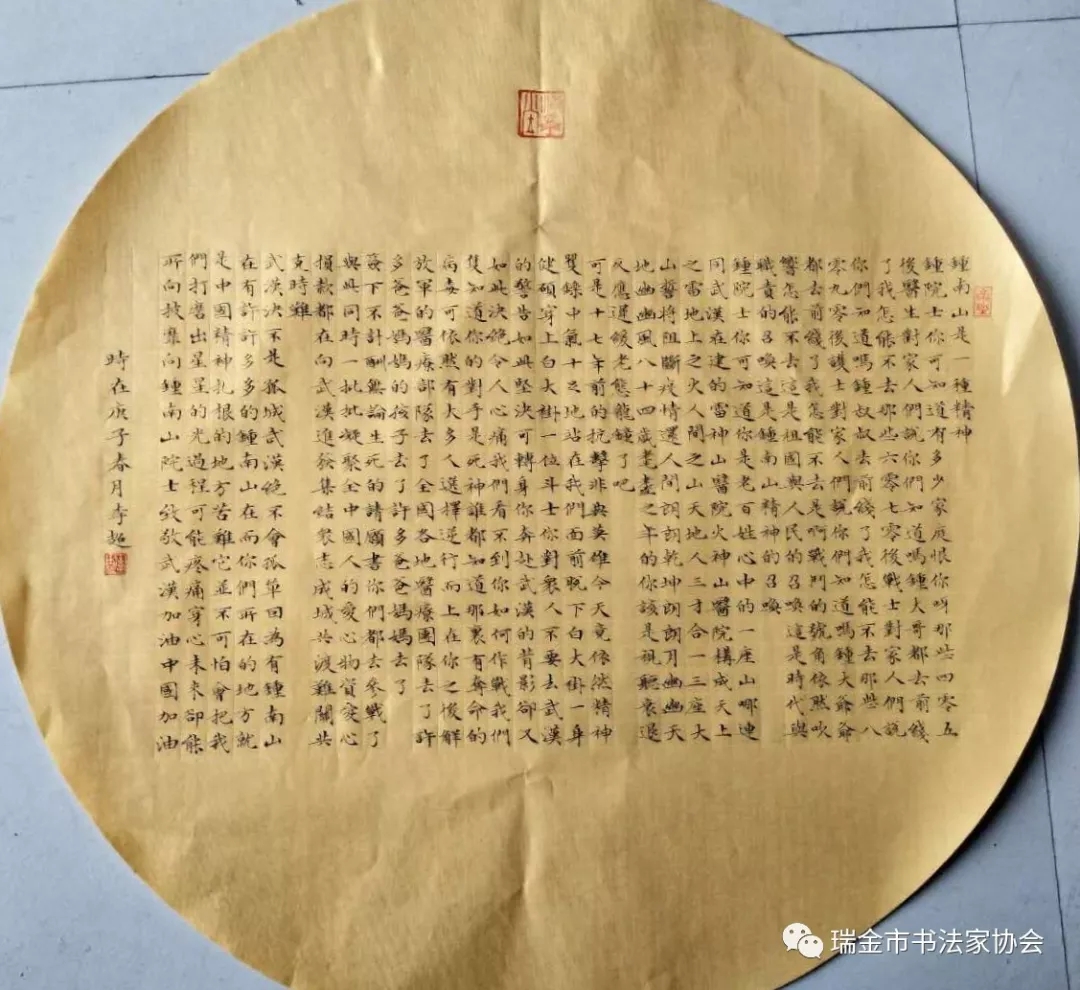 鍾南山是一種精神
鍾院士你可知道有多少家庭恨你呀那些四零五
後醫生對家人們說你們知道嗎鍾大哥都去前綫
了我怎能不去那些六零七零後戰士對家人們說
你們知道嗎鍾叔叔去前綫了我怎能不去那些八
零九零後護士對家人們說你們知道嗎鍾大爺爺
都去前綫了我怎能不去是啊戰鬥的號角依然吹
響怎能不去這是祖國與人民的召喚這是時代與
職責的召喚這是鍾南山精神的召喚
鍾院士你可知道你是老百姓心中的一座山哪連
同武漢在建的雷神山醫院火神山醫院構成天上
之雷地上之火人間之山天地人三才合一三座大
山誓將阻斷疫情還人間朗朗乾坤朗朗月幽幽天
地幽幽風八十四歲耄耋之年的你該是視聽衰退
反應遲緩老態龍鍾了吧
可是十七年前的抗擊非典英雄今天竟依然精神
矍鑠中氣十足地站在我們面前脫下白大掛一身
健碩穿上白大掛一位斗士你對衆人不要去武漢
的警告如此堅決可轉身你奔赴武漢的背影卻又
如此決絶令人心痛我們看不到你如何作戰我們
隻知道你的對手是死神誰都知道那裏有奪命的
病毒可依然有大多人選擇逆行而上在你之後解
放軍的醫療部隊去了全國各地醫療團隊去了許
多爸爸媽媽的孩子去了許多爸爸媽媽去了
簽下不計酬無論生死的請願書你們都去參戰了
與此同時一批批凝聚全中國人的愛心物資愛心
損款都在向武漢進發集結衆志成城共渡難關共
克時難
武漢決不是孤城武漢絶不會孤單因為有鍾南山
在有許許多多的鍾南山在而你們所在的地方就
是中國精神扎根的地方苦難它並不可怕會把我
們打磨出星星的光過程可能疼痛穿心未來卻能
所向披靡向鍾南山院士致敬武漢加油中國加油
時在庚子春月李超
瑞金市书法家协会